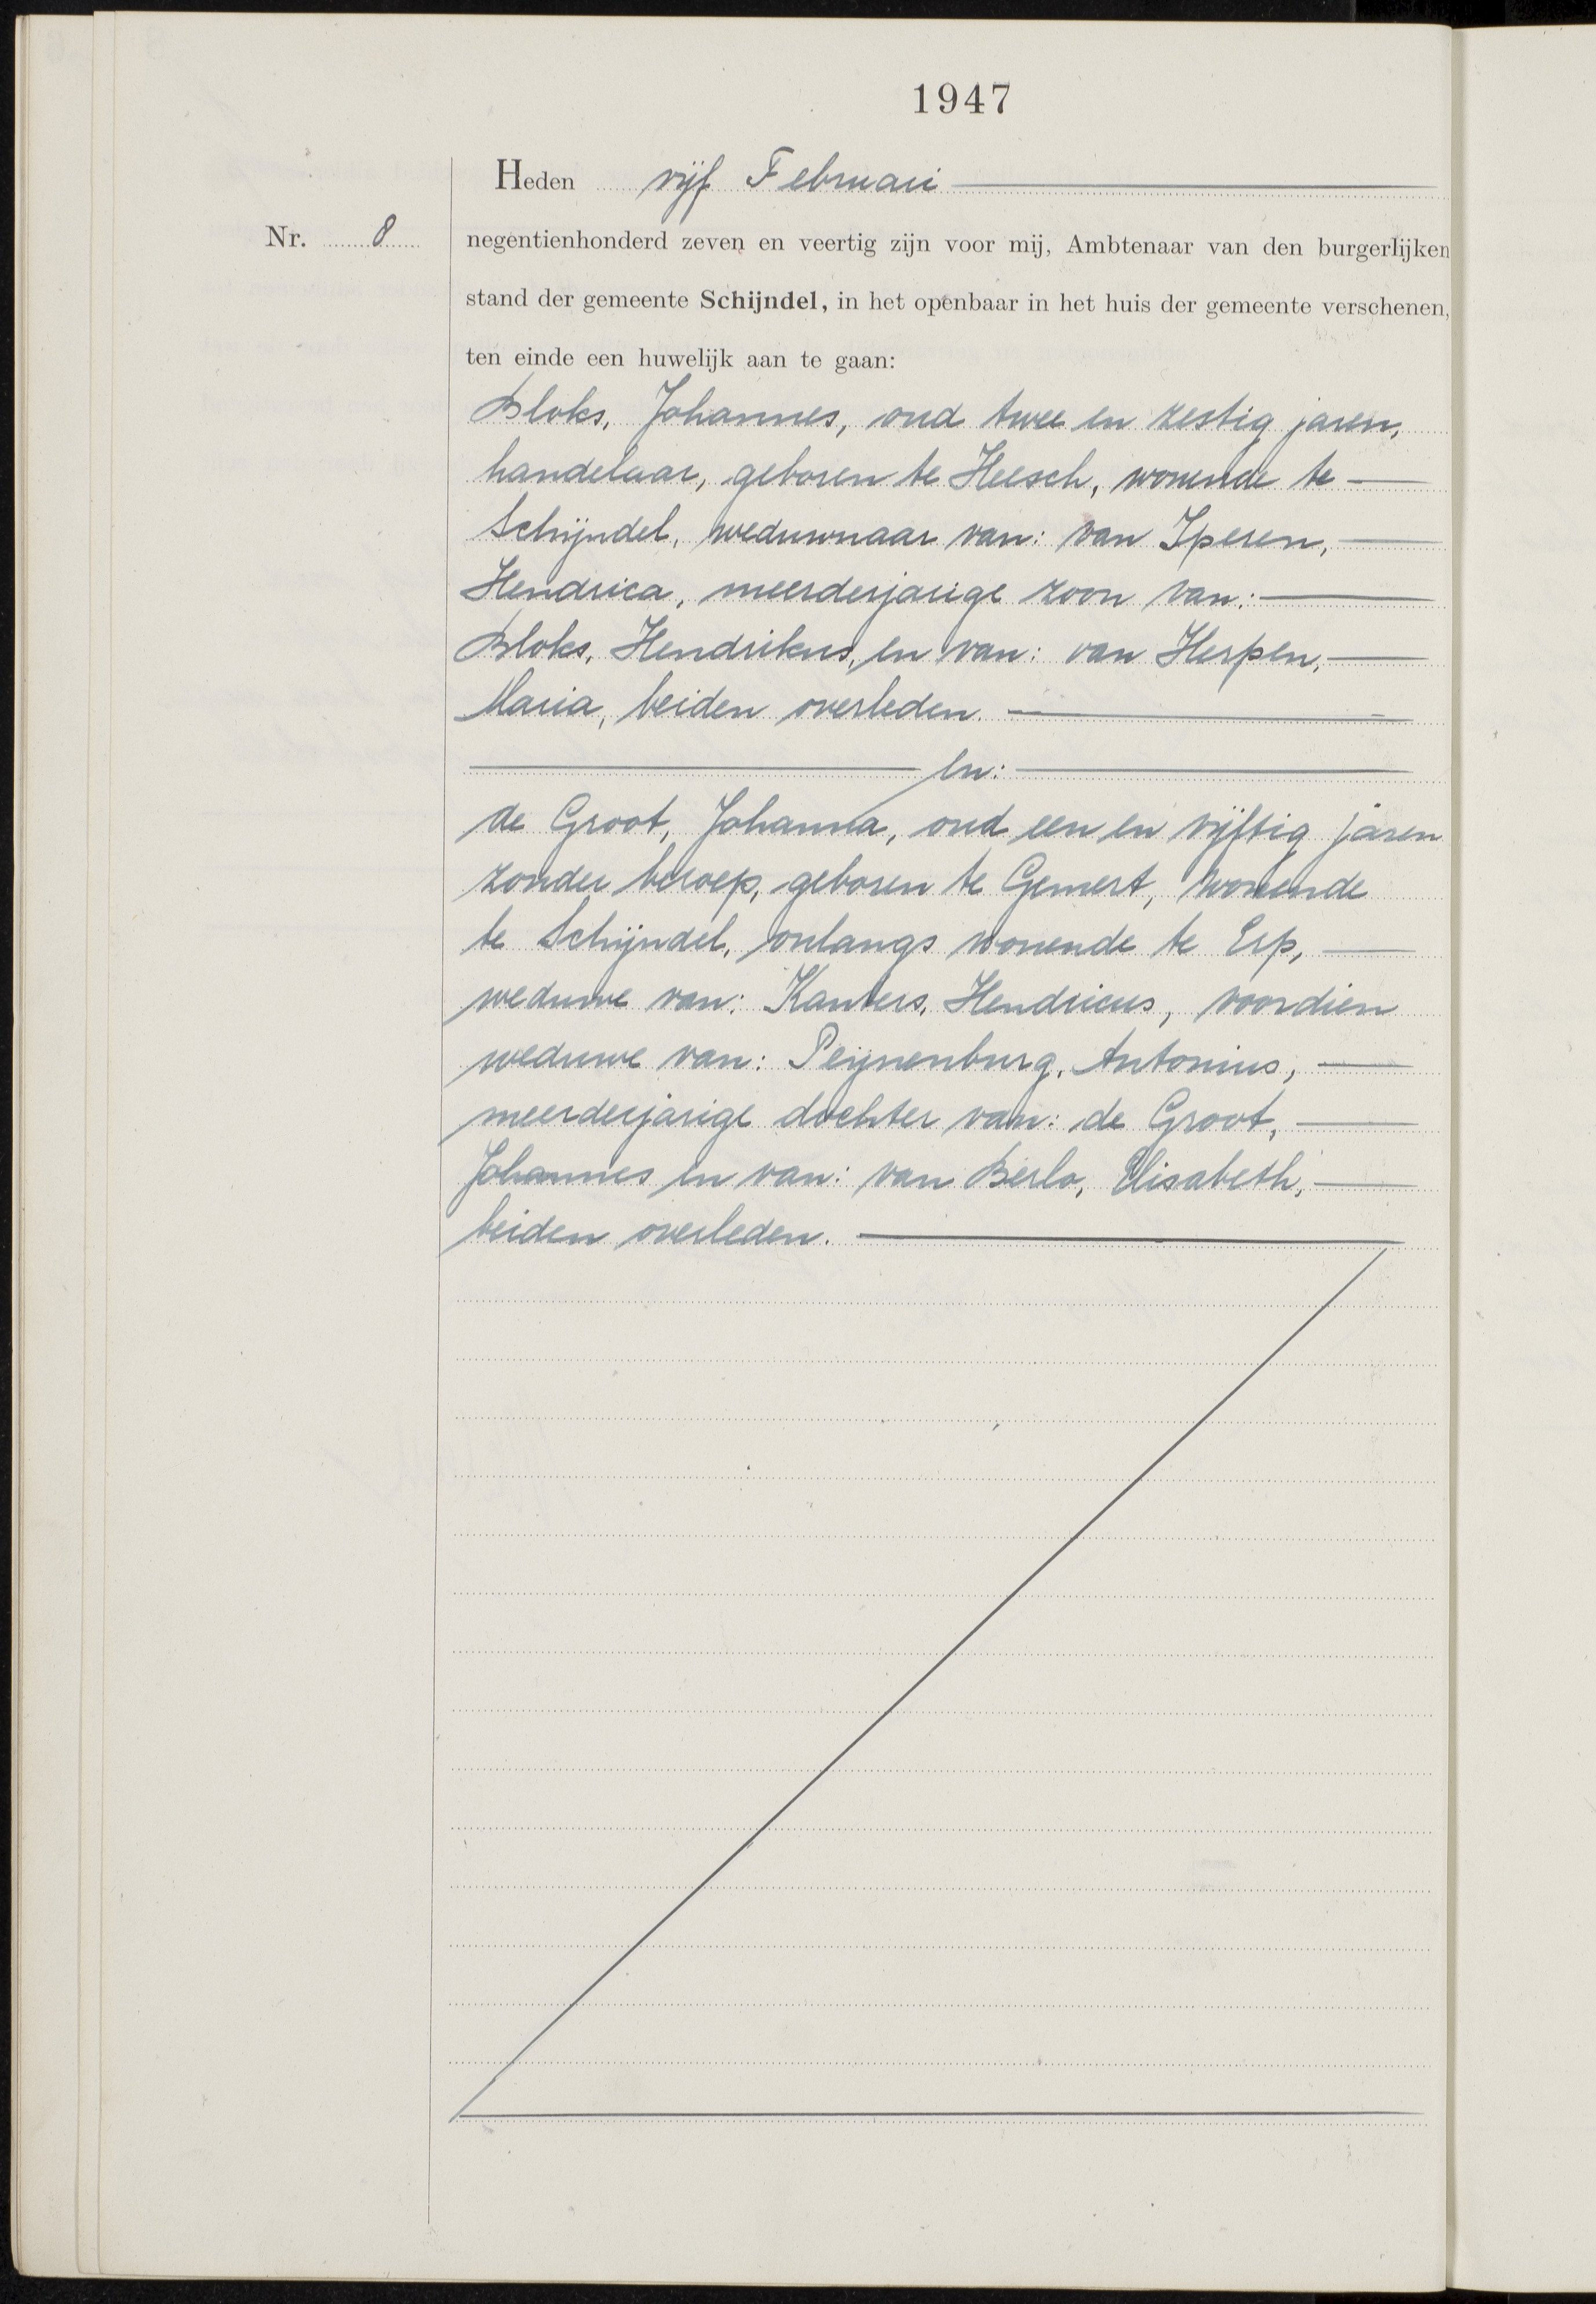 1947
Heden vijf Februari
Nr. 8
negentienhonderd zeven en veertig zijn voor mij, Ambtenaar van den burgerlijken
stand der gemeente Schijndel, in het openbaar in het huis der gemeente verschenen,
ten einde een huwelijk aan te gaan:
Bloks, Johannes, oud twee en zestig jaren,
handelaar, geboren te Heesch, wonende te
Schijndel, weduwnaar van: van Iperen,
Hendrica, meerderjarige zoon van:
Bloks, Hendrikus, en van: van Herpen,
Maria, beiden overleden.
en:
de Groot, Johanna, oud een en vijftig jaren
zonder beroep, geboren te Gemert, wonende
te Schijndel, onlangs wonende te Erp,
weduwe van: Kanters, Hendricus, voordien
weduwe van: Peijnenburg, Antonius,
meerderjarige dochter van: de Groot,
Johannes en van: van Berlo, Elisabeth,
beiden overleden.